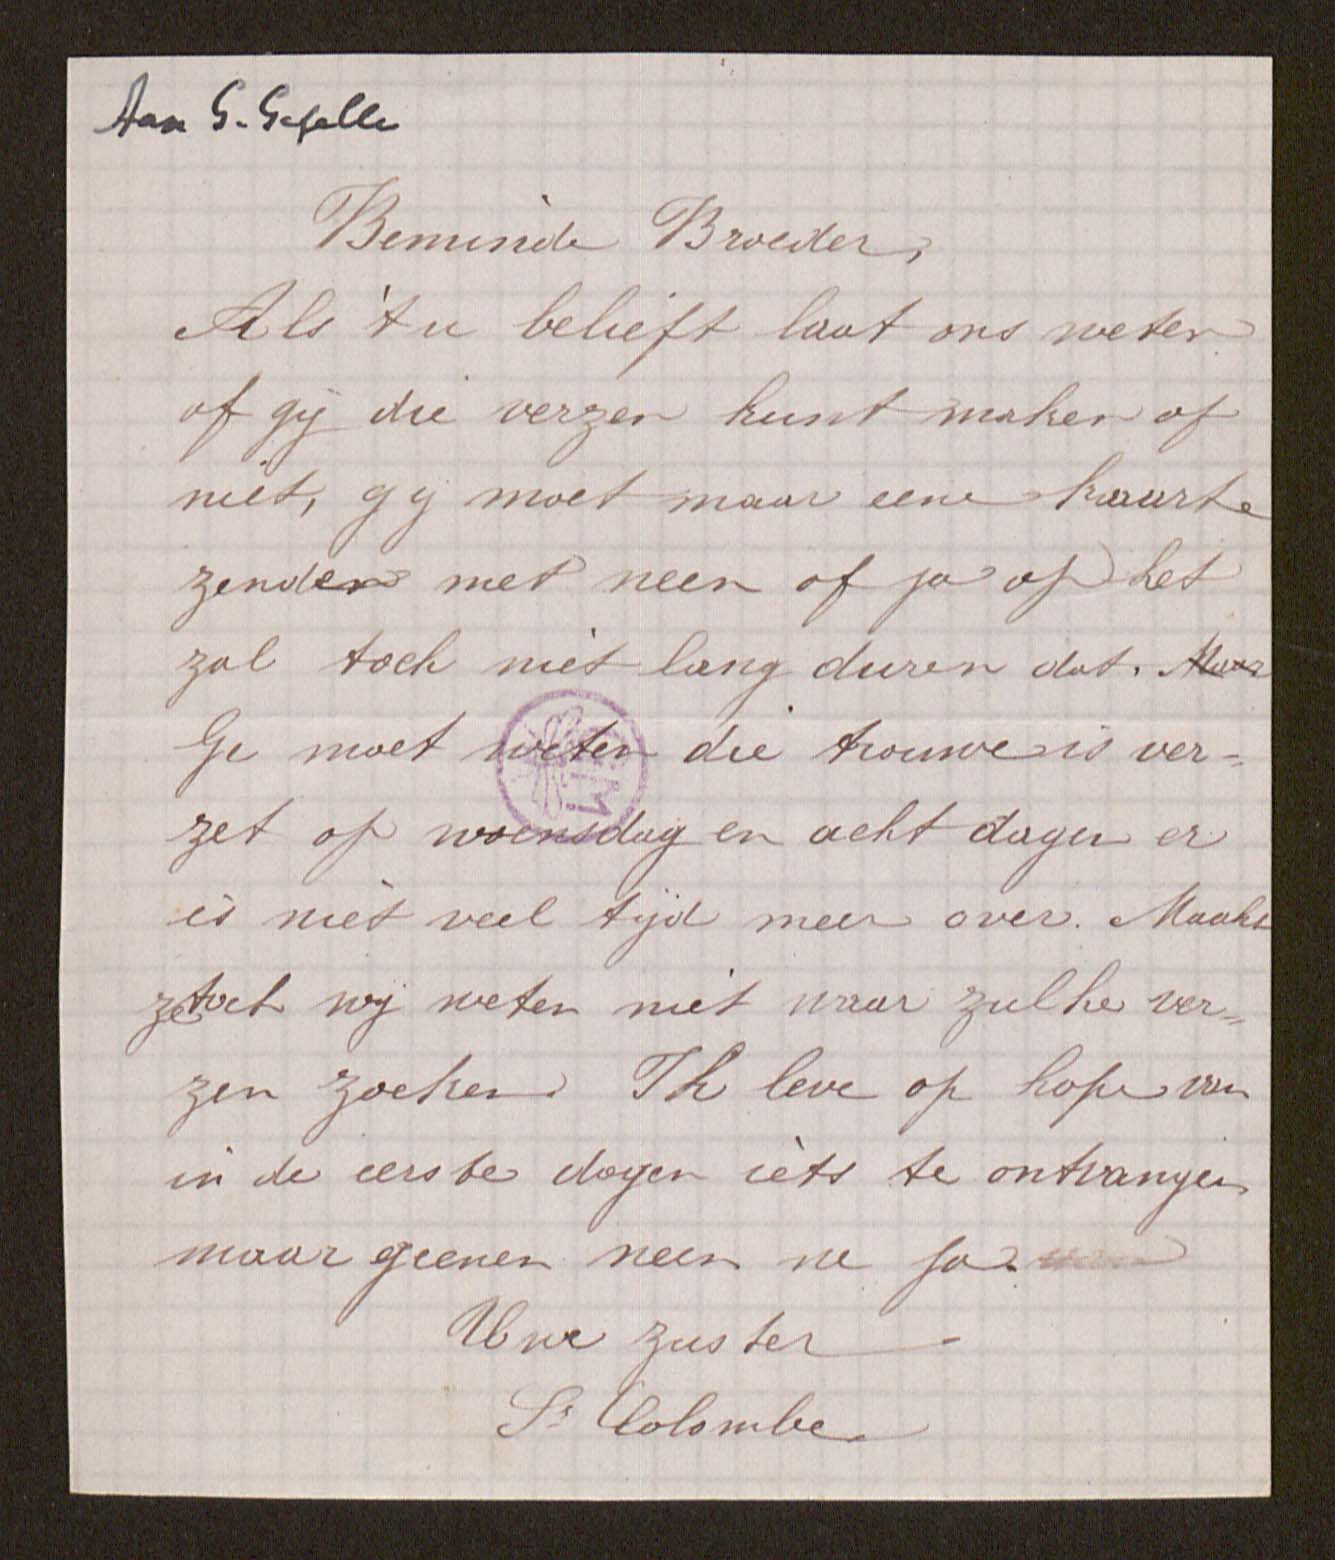 Aan G. Gezelle
Beminde Broeder,
Als 't u belieft laat ons weten
of gij die verzen kunt maken of
niet, gij moet maar eene kaarte
zenden met neen of ja op het
zal toch niet lang duren dat. Maar
Ge moet weten die trouwe is ver=
zet op woensdag en acht dagen er
is niet veel tijd meer over. Maakt
ze toch wij weten niet waar zulke ver=
zen zoeken. Ik leve op hope van
in de eerste dagen iets te ontvangen
maar geenen neen ne ja.
Uwe zuster
Sr Colombe